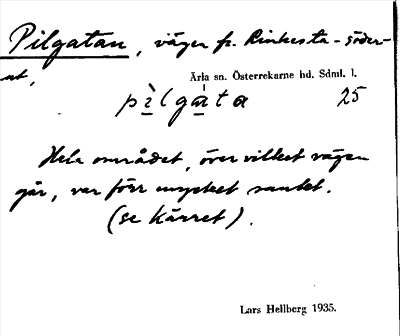 Pilgatan, vägen fr. Rinkesta-söder-
ut,
Ärla sn. Österrekarne hd. Sdml. l.
pìlgata 25
Hela området, över vilket vägen
går, var förr mycket sankt.
(se Kärret).
Lars Hellberg 1935.